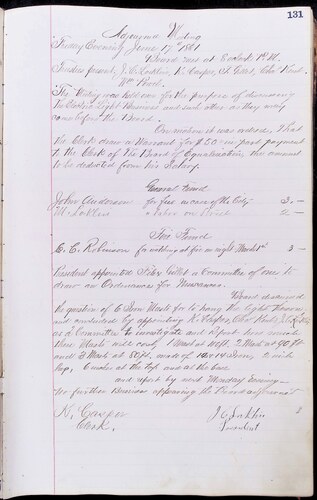 131
Adjourned Meeting
Friday Evening June 17th 1881
Board met at 8 o'clock P.M.
Trustees present, J. C. Conklin, N. Casper, St. Gillet, Chas
The Meeting was held over for the purpose of discussing
the Electric Light Business and such other as they may
come before the Board.
On motion it was ordered, That
the Clerk draw a Warrant for $20 in part payment
to the Clerk of the Board of Equalization, the amount
to be deducted from his Salary.
General Fund
John Anderson for fees in care of the City 3.—
labor on Street 2.—
Fire Fund
C. C. Robinson for watching at fire on night March 3—
President appointed Gillet a Committee of one to
draw an Ordinance for
Board discussed
the question of 6 Iron Masts for to hang the light thereon
and concluded by appointing N. Casper, Chas
as a Committee to investigate and report how much
these Masts will cost, 1 Mast at 2 Masts at 90 ft
and 3 Mast at 80 ft. made of 12 x 14 with
top, under at the top and at the base
and report by next Monday Evening—
No further Business appearing the Board adjourned
N. Casper
Clerk.
J. C. Conklin
President